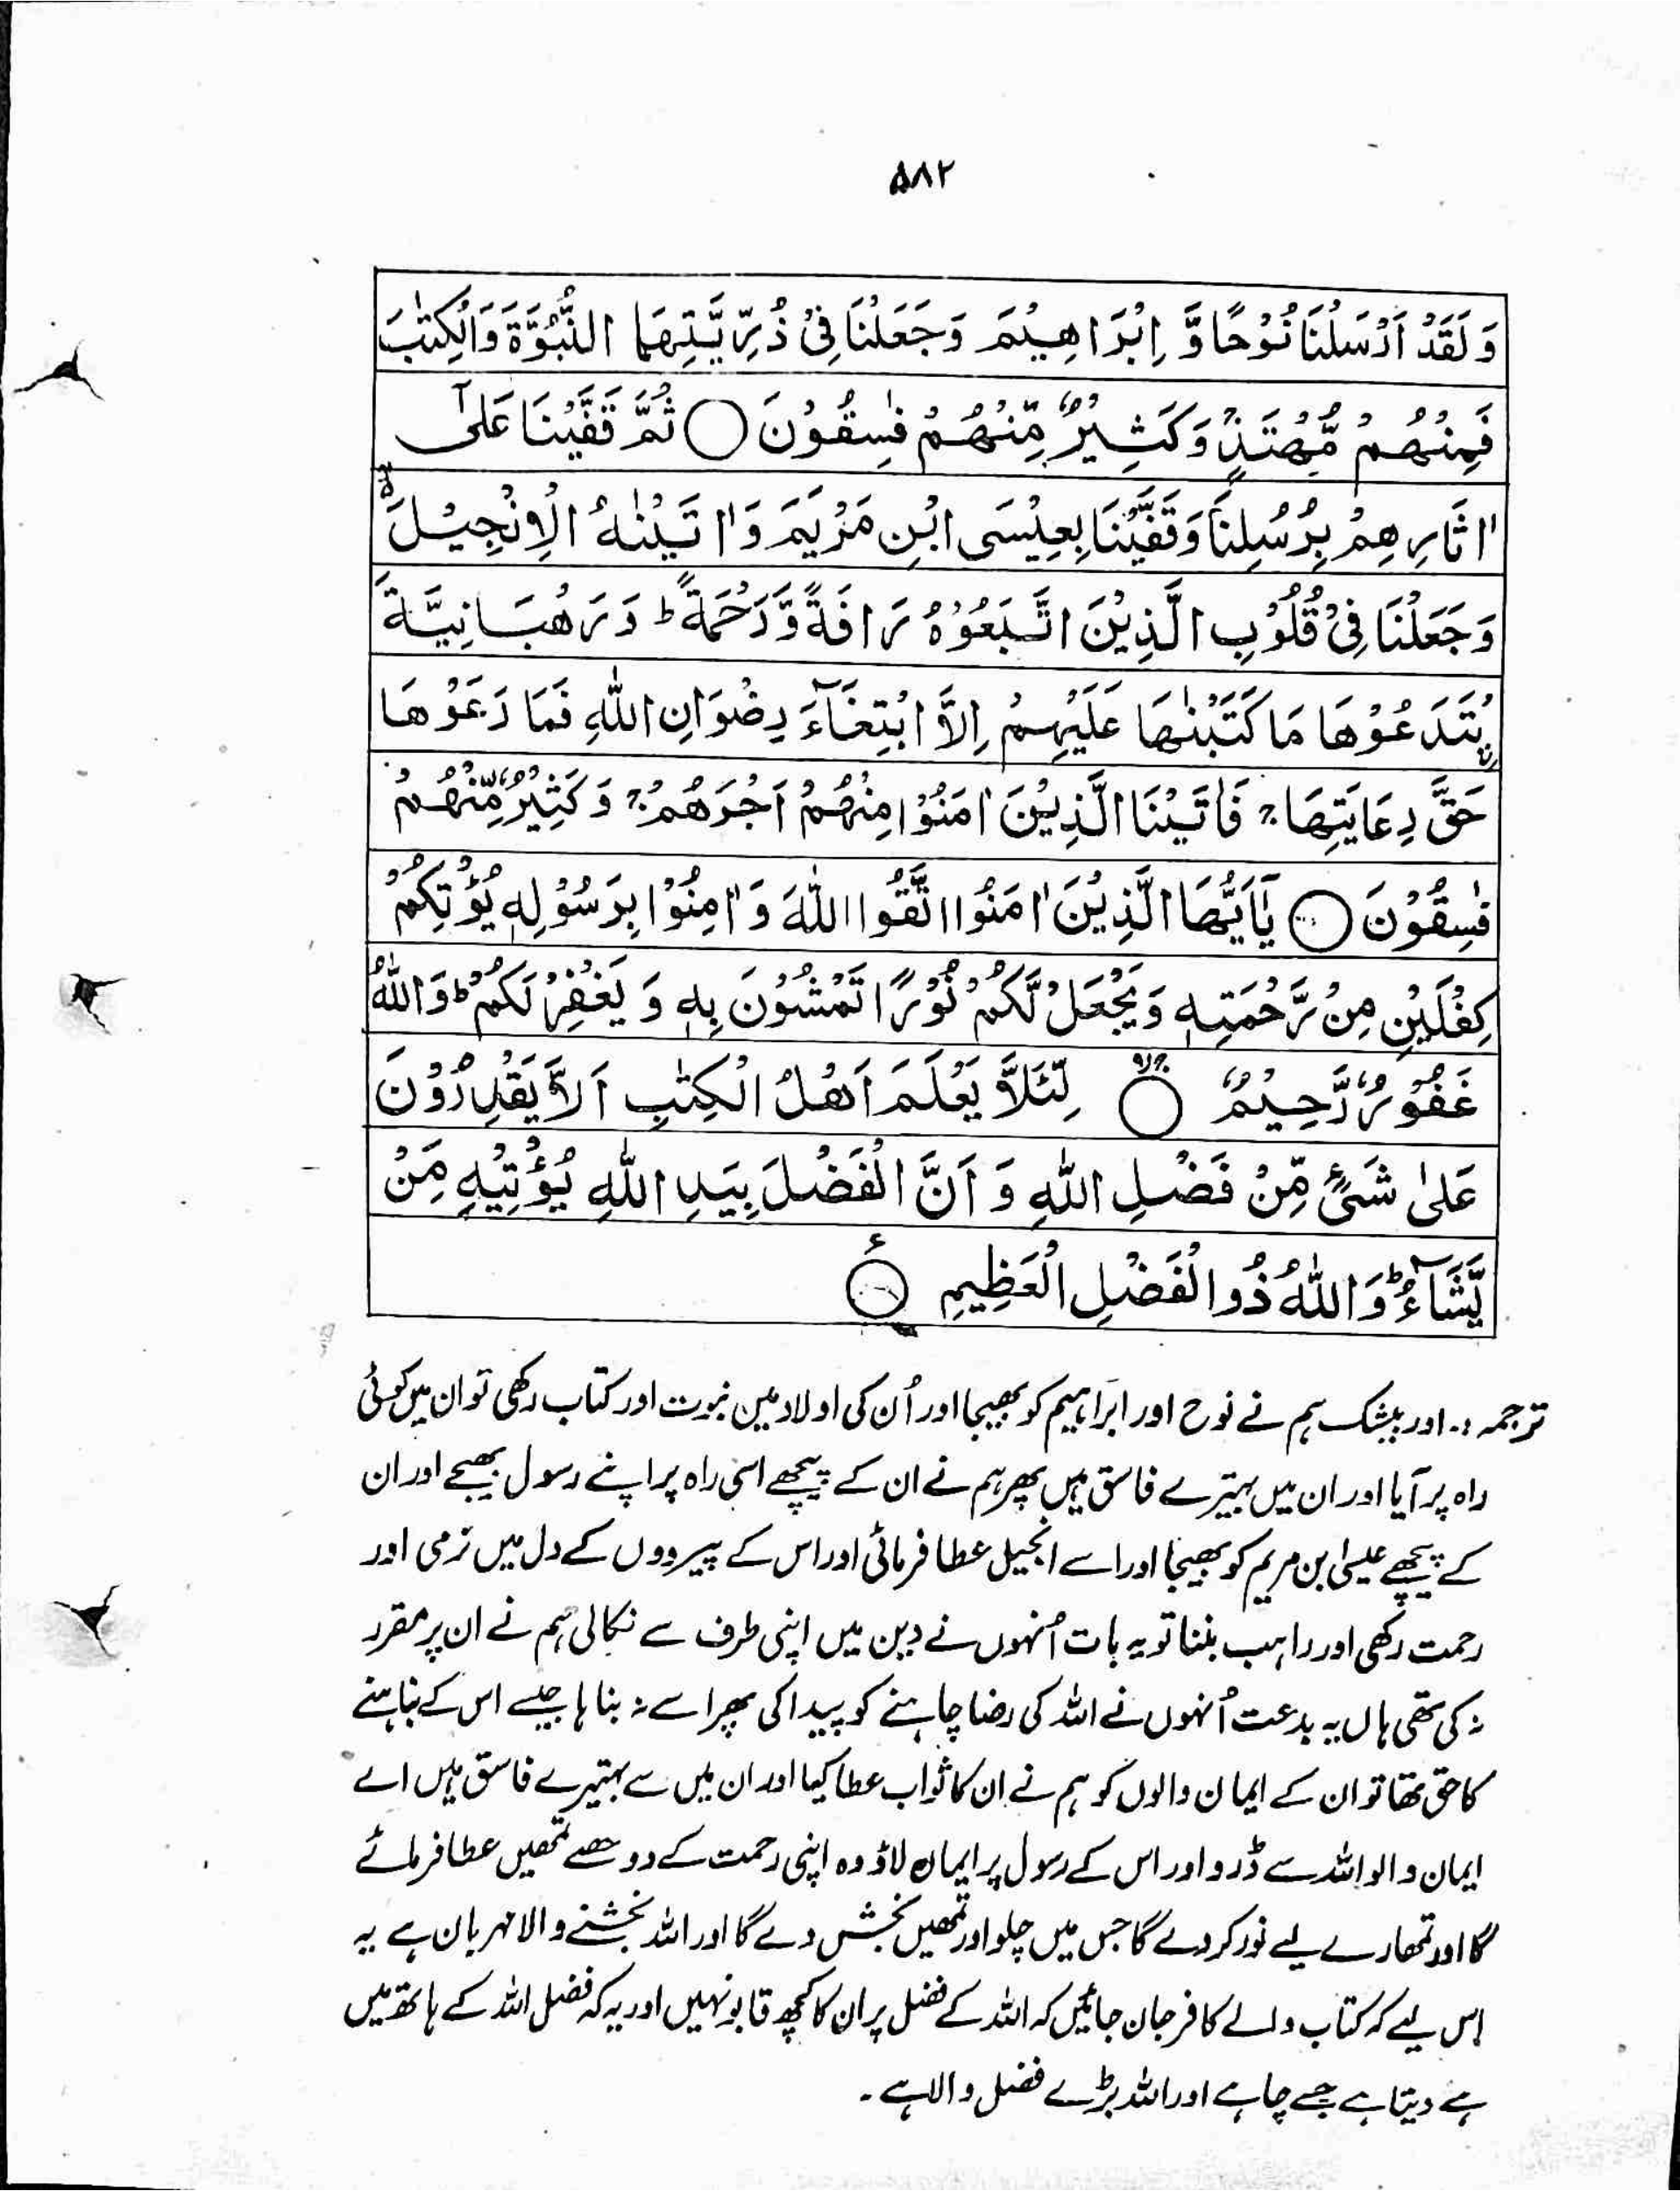 ۵۸۲
وَلَقَدْ اَرْسَلْنَا نُوْحًا وَّ اِبْرَاهِیْمَ وَجَعَلْنَا فِیْ ذُرِّیَّتِهِمَا النُّبُوَّةَ وَالْکِتٰبَ
فَمِنْهُمْ مُّهْتَدٍ ۚ وَکَثِیْرٌ مِّنْهُمْ فٰسِقُوْنَ ○ ثُمَّ قَفَّیْنَا عَلٰٓی
اٰثَارِهِمْ بِرُسُلِنَا وَقَفَّیْنَا بِعِیْسَی ابْنِ مَرْیَمَ وَاٰتَیْنٰهُ الْاِنْجِیْلَ
وَجَعَلْنَا فِیْ قُلُوْبِ الَّذِیْنَ اتَّبَعُوْهُ رَافَةً وَّرَحْمَةً ؕ وَرَهْبَانِیَّةَ
ۨبْتَدَعُوْهَا مَا کَتَبْنٰهَا عَلَیْهِمْ اِلَّا ابْتِغَآءَ رِضْوَانِ اللّٰهِ فَمَا رَعَوْهَا
حَقَّ رِعَایَتِهَا ۚ فَاٰتَیْنَا الَّذِیْنَ اٰمَنُوْا مِنْهُمْ اَجْرَهُمْ ۚ وَکَثِیْرٌ مِّنْهُمْ
فٰسِقُوْنَ ○ یٰۤاَیُّهَا الَّذِیْنَ اٰمَنُوا اتَّقُوا اللّٰهَ وَاٰمِنُوْا بِرَسُوْلِهٖ یُؤْتِکُمْ
کِفْلَیْنِ مِنْ رَّحْمَتِهٖ وَیَجْعَلْ لَّکُمْ نُوْرًا تَمْشُوْنَ بِهٖ وَیَغْفِرْ لَکُمْ ؕ وَاللّٰهُ
غَفُوْرٌ رَّحِیْمٌ ○ لِّئَلَّا یَعْلَمَ اَهْلُ الْکِتٰبِ اَلَّا یَقْدِرُوْنَ
عَلٰی شَیْءٍ مِّنْ فَضْلِ اللّٰهِ وَ اَنَّ الْفَضْلَ بِیَدِ اللّٰهِ یُؤْتِیْهِ مَنْ
یَّشَآءُ ؕ وَاللّٰهُ ذُوالْفَضْلِ الْعَظِیْمِ ○
ترجمہ :۔ اور بیشک ہم نے نوح اور ابراہیم کو بھیجا اور اُن کی اولاد میں نبوت اور کتاب رکھی تو ان میں کوئی
راہ پر آیا اور ان میں بہتیرے فاسق ہیں پھر ہم نے ان کے پیچھے اسی راہ پر اپنے رسول بھیجے اور ان
کے پیچھے عیسیٰ ابن مریم کو بھیجا اور اسے انجیل عطا فرمائی اور اس کے پیرووں کے دل میں نرمی اور
رحمت رکھی اور راہب بننا تو یہ بات اُنہوں نے دین میں اپنی طرف سے نکالی ہم نے ان پر مقرر
نہ کی تھی ہاں یہ بدعت اُنہوں نے اللہ کی رضا چاہنے کو پیدا کی پھر اسے نہ بناہا جیسے اس کے بناہنے
کا حق تھا تو ان کے ایمان والوں کو ہم نے ان کا ثواب عطا کیا اور ان میں سے بہتیرے فاسق ہیں اے
ایمان والو اللہ سے ڈرو اور اس کے رسول پر ایمان لاؤ وہ اپنی رحمت کے دو حصے تمھیں عطا فرمائے
گا اور تمھارے لیے نور کر دے گا جس میں چلو اور تمھیں بخش دے گا اور اللہ بخشنے والا مہربان ہے یہ
اس لیے کہ کتاب والے کافر جان جائیں کہ اللہ کے فضل پر ان کا کچھ قابو نہیں اور یہ کہ فضل اللہ کے ہاتھ میں
ہے دیتا ہے جسے چاہے اور اللہ بڑے فضل والا ہے ۔